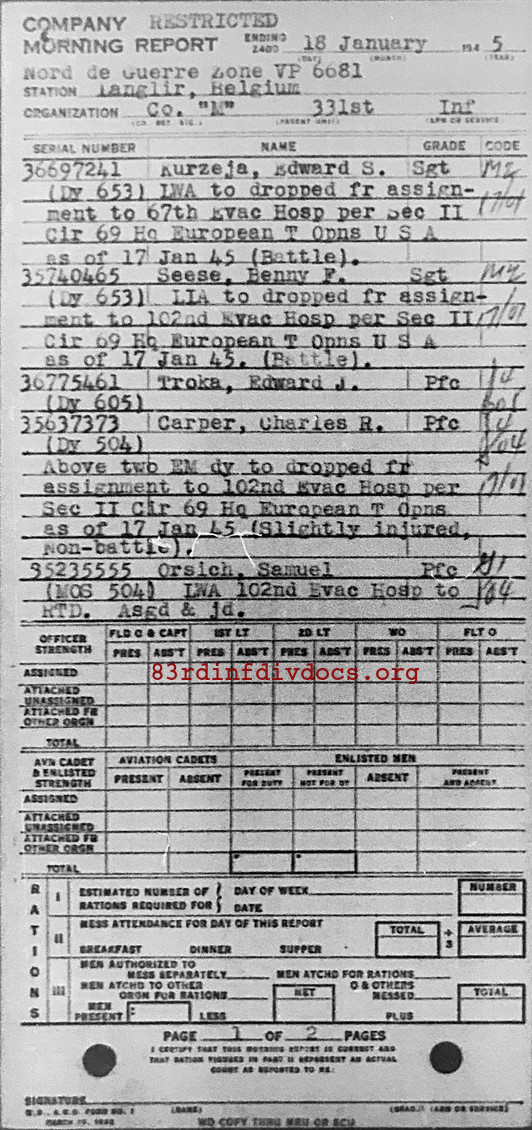 COMPANY RESTRICTED
MORNING REPORT ENDING 2400 18 January 194 5
(DAY) (MONTH) (YEAR)
Nord de Guerre Zone VP 6681
STATION Langlir, Belgium
ORGANIZATION Co. "M" 331st Inf
(PARENT UNIT) (ARM OR SERVICE)
SERIAL NUMBER NAME GRADE CODE
36697241 Kurzeja, Edward S. Sgt MZ
(Dy 653) LWA to dropped fr assign-
ment to 67th Evac Hosp per Sec II 17/01
Cir 69 Hq European T Opns U S A
as of 17 Jan 45 (Battle).
35740465 Seese, Benny F. Sgt MZ
(Dy 653) LIA to dropped fr assign-
ment to 102nd Evac Hosp per Sec II 17/01
Cir 69 Hq European T Opns U S A
as of 17 Jan 45. (Battle).
36775461 Troka, Edward J. Pfc
(Dy 605) 605
35637373 Carper, Charles R. Pfc
(Dy 504)
Above two EM dy to dropped fr
assignment to 102nd Evac Hosp per 17/01
Sec II Cir 69 Hq European T Opns
as of 17 Jan 45 (Slightly injured,
Non-battle).
35235555 Orsich, Samuel Pfc
(MOS 504) LWA 102nd Evac Hosp to
RTD. Asgd & jd.
OFFICER STRENGTH FLD O & CAPT 1ST LT 2D LT WO FLT O
PRES ABS'T PRES ABS'T PRES ABS'T PRES ABS'T PRES ABS'T
ASSIGNED
83rdinfdivdocs.org
ATTACHED UNASSIGNED
ATTACHED FR OTHER ORGN
TOTAL
AVN CADET & ENLISTED STRENGTH AVIATION CADETS ENLISTED MEN
PRESENT ABSENT PRESENT FOR DUTY PRESENT NOT FOR DY ABSENT PRESENT AND ABSENT
ASSIGNED
ATTACHED UNASSIGNED
ATTACHED FR OTHER ORGN
TOTAL
RATIONS
I ESTIMATED NUMBER OF RATIONS REQUIRED FOR DAY OF WEEK DATE NUMBER
II MESS ATTENDANCE FOR DAY OF THIS REPORT TOTAL ÷ 3 AVERAGE
BREAKFAST DINNER SUPPER
III MEN AUTHORIZED TO MESS SEPARATELY MEN ATCHD FOR RATIONS
MEN ATCHD TO OTHER ORGN FOR RATIONS NET O & OTHERS MESSED TOTAL
MEN PRESENT LESS PLUS
PAGE 1 OF 2 PAGES
I CERTIFY THAT THIS MORNING REPORT IS CORRECT AND
THAT RATION FIGURES IN PART II REPRESENT AN ACTUAL
COUNT AS REPORTED TO ME:
SIGNATURE
W.D., A.G.O. FORM NO. 1 (NAME) (GRADE) (ARM OR SERVICE)
WD COPY THRU MRU OR SCU